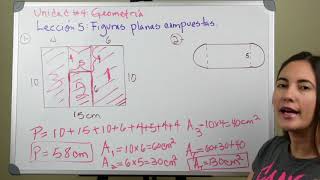 Unidad #4: Geometría
Lección 5: Figuras planas compuestas.
1- 4 6 2-
10 4 4 10 5
5
15cm
P= 10+15+10+6+4+5+4+4
P= 58cm
A₁=10x6=60cm²
A₂=6x5=30cm²
A₃=10x4=40cm²
A_T=60+30+40
A_T=130cm²